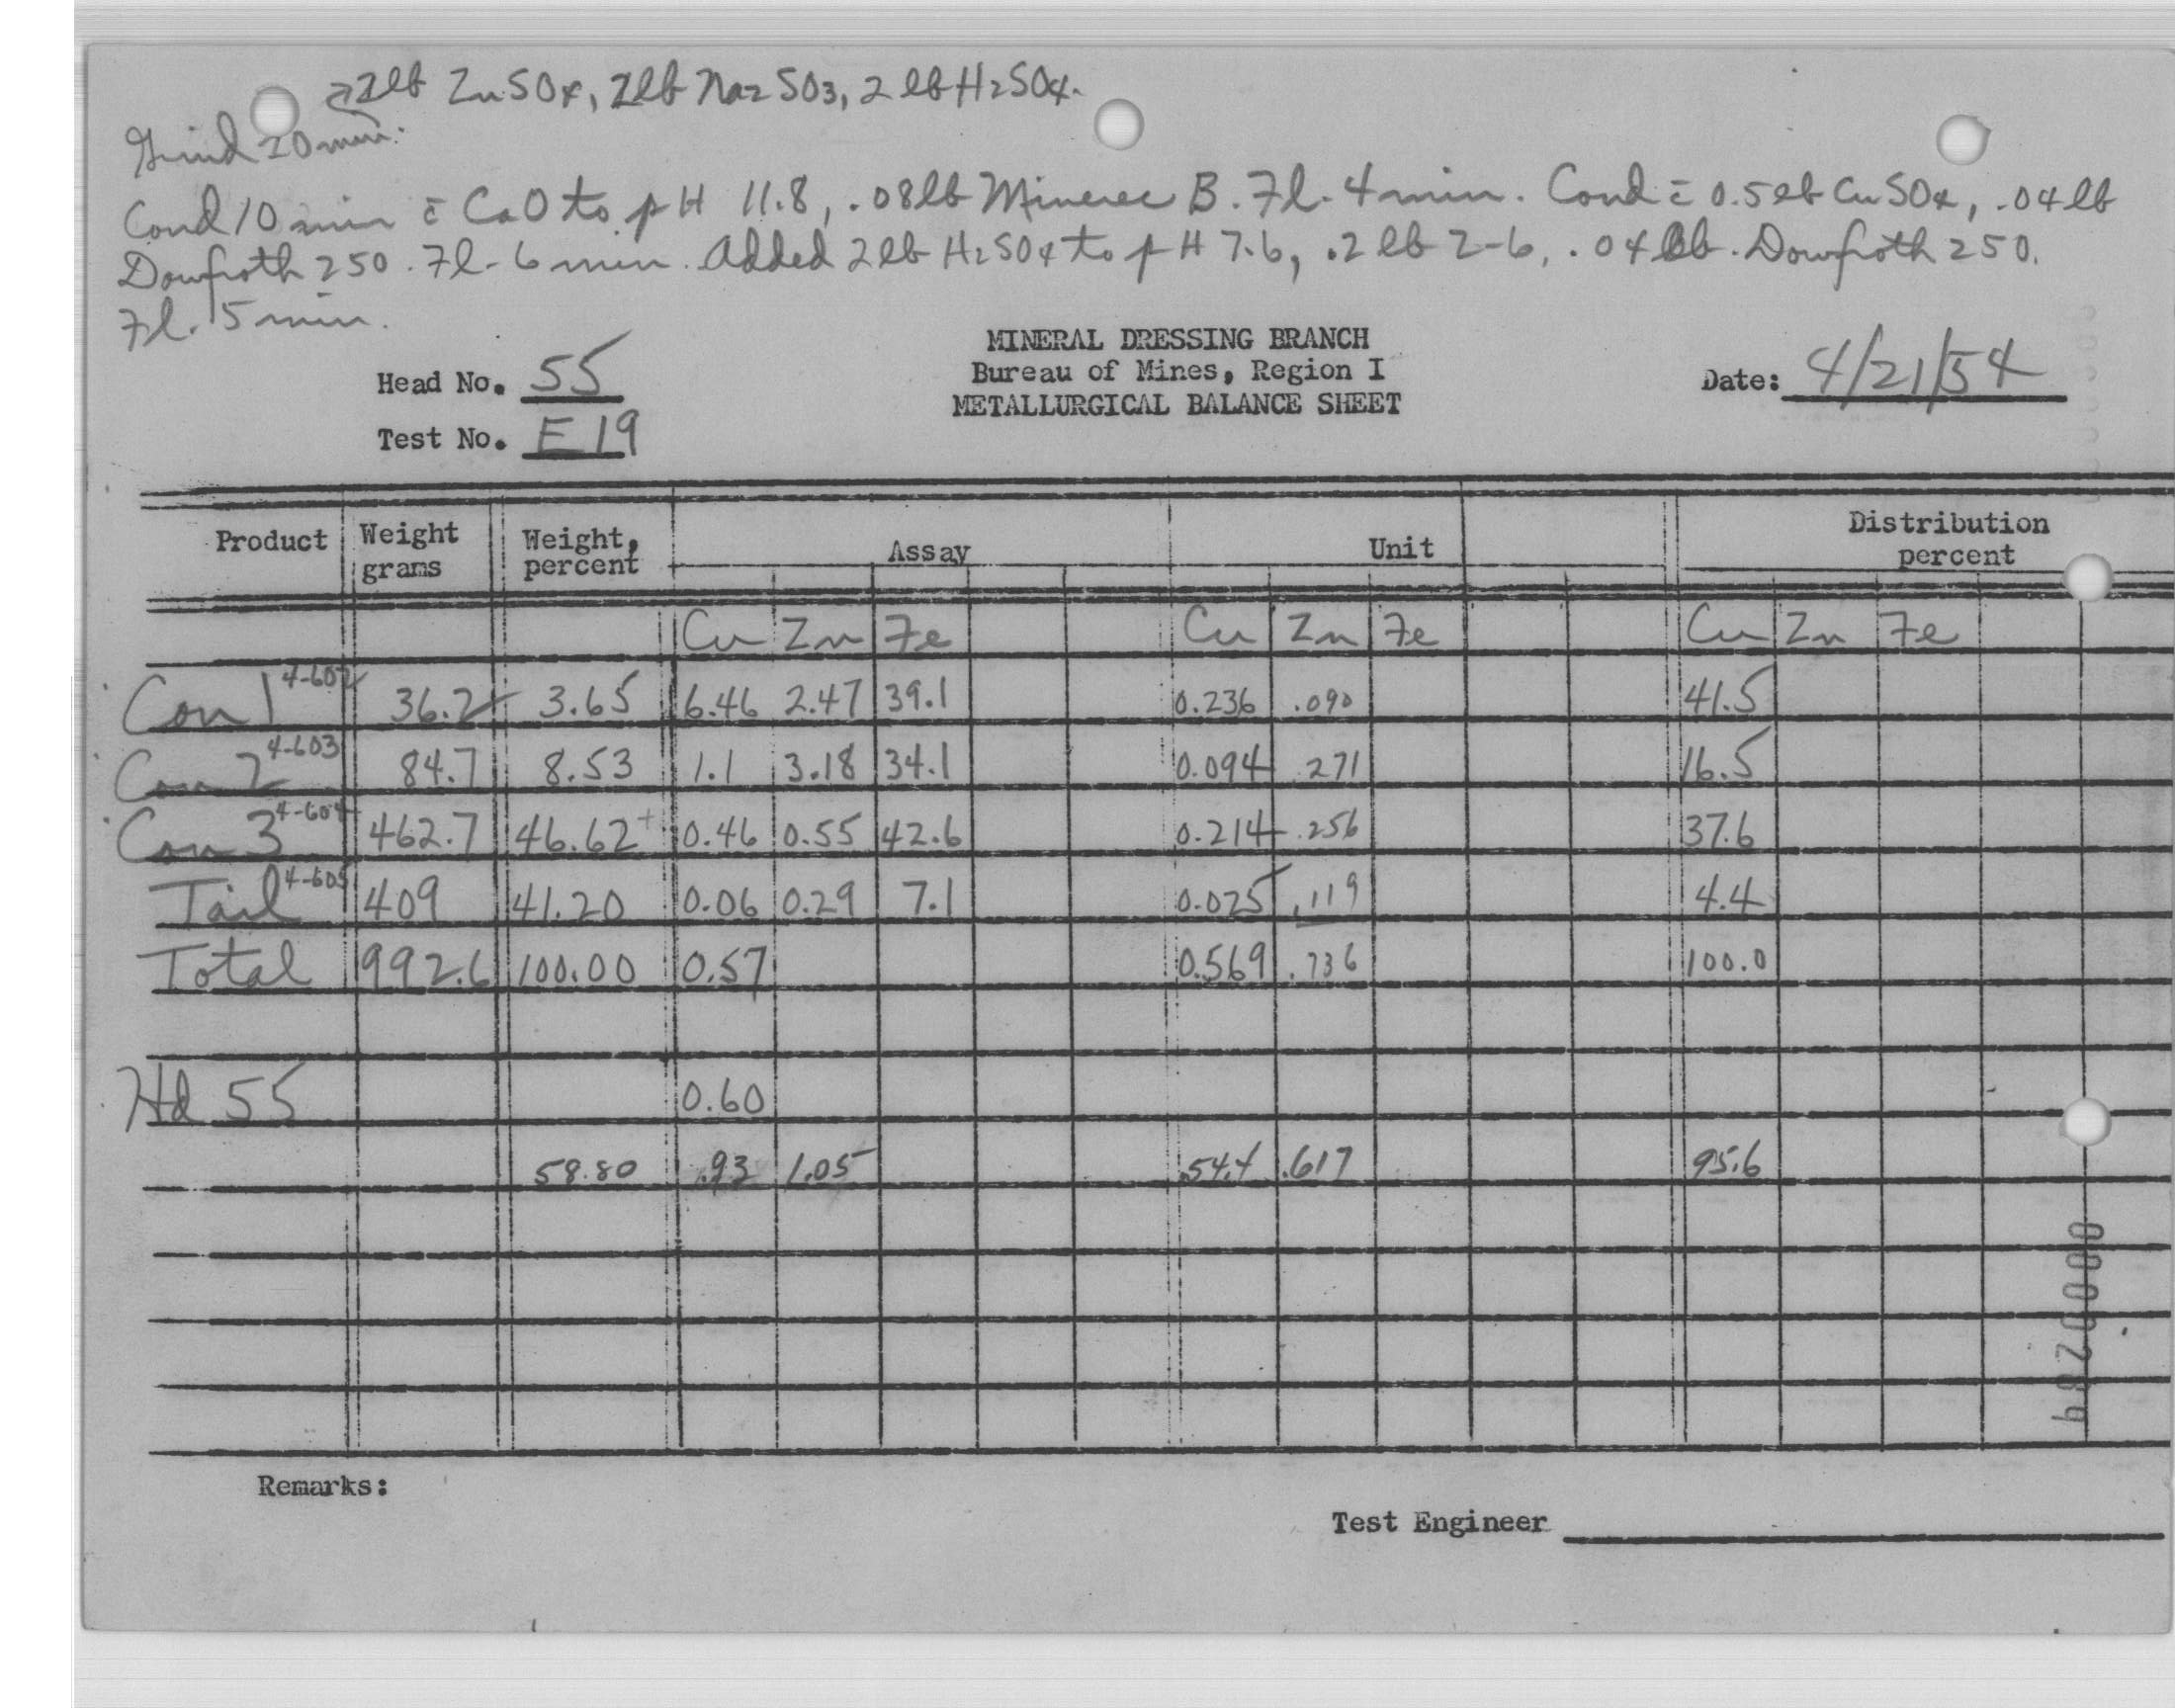 c̄ 2lb ZnSO4, 2lb Na2SO3, 2lb H2SO4.
Grind 20 min.
Cond 10 min c̄ CaO to pH 11.8, .08lb Minerec B. Fl. 4 min. Cond c̄ 0.5lb CuSO4, .04lb
Dowfroth 250. Fl- 6 min. Added 2lb H2SO4 to pH 7.6, .2lb Z-6, .04 lb. Dowfroth 250.
Fl. 15 min.
MINERAL DRESSING BRANCH
Head No. 55 Bureau of Mines, Region I Date: 4/21/54
METALLURGICAL BALANCE SHEET
Test No. E19
Product Weight grams Weight, percent Assay Unit Distribution percent
Cu Zn Fe Cu Zn Fe Cu Zn Fe
Con 1 4-602 36.2 3.65 6.46 2.47 39.1 0.236 .090 41.5
Con 2 4-603 84.7 8.53 1.1 3.18 34.1 0.094 .271 16.5
Con 3 4-604 462.7 46.62+ 0.46 0.55 42.6 0.214 .256 37.6
Tail 4-605 409 41.20 0.06 0.29 7.1 0.025 .119 4.4
Total 992.6 100.00 0.57 0.569 .736 100.0
Hd 55 0.60
58.80 .93 1.05 .544 .617 95.6
Remarks:
Test Engineer